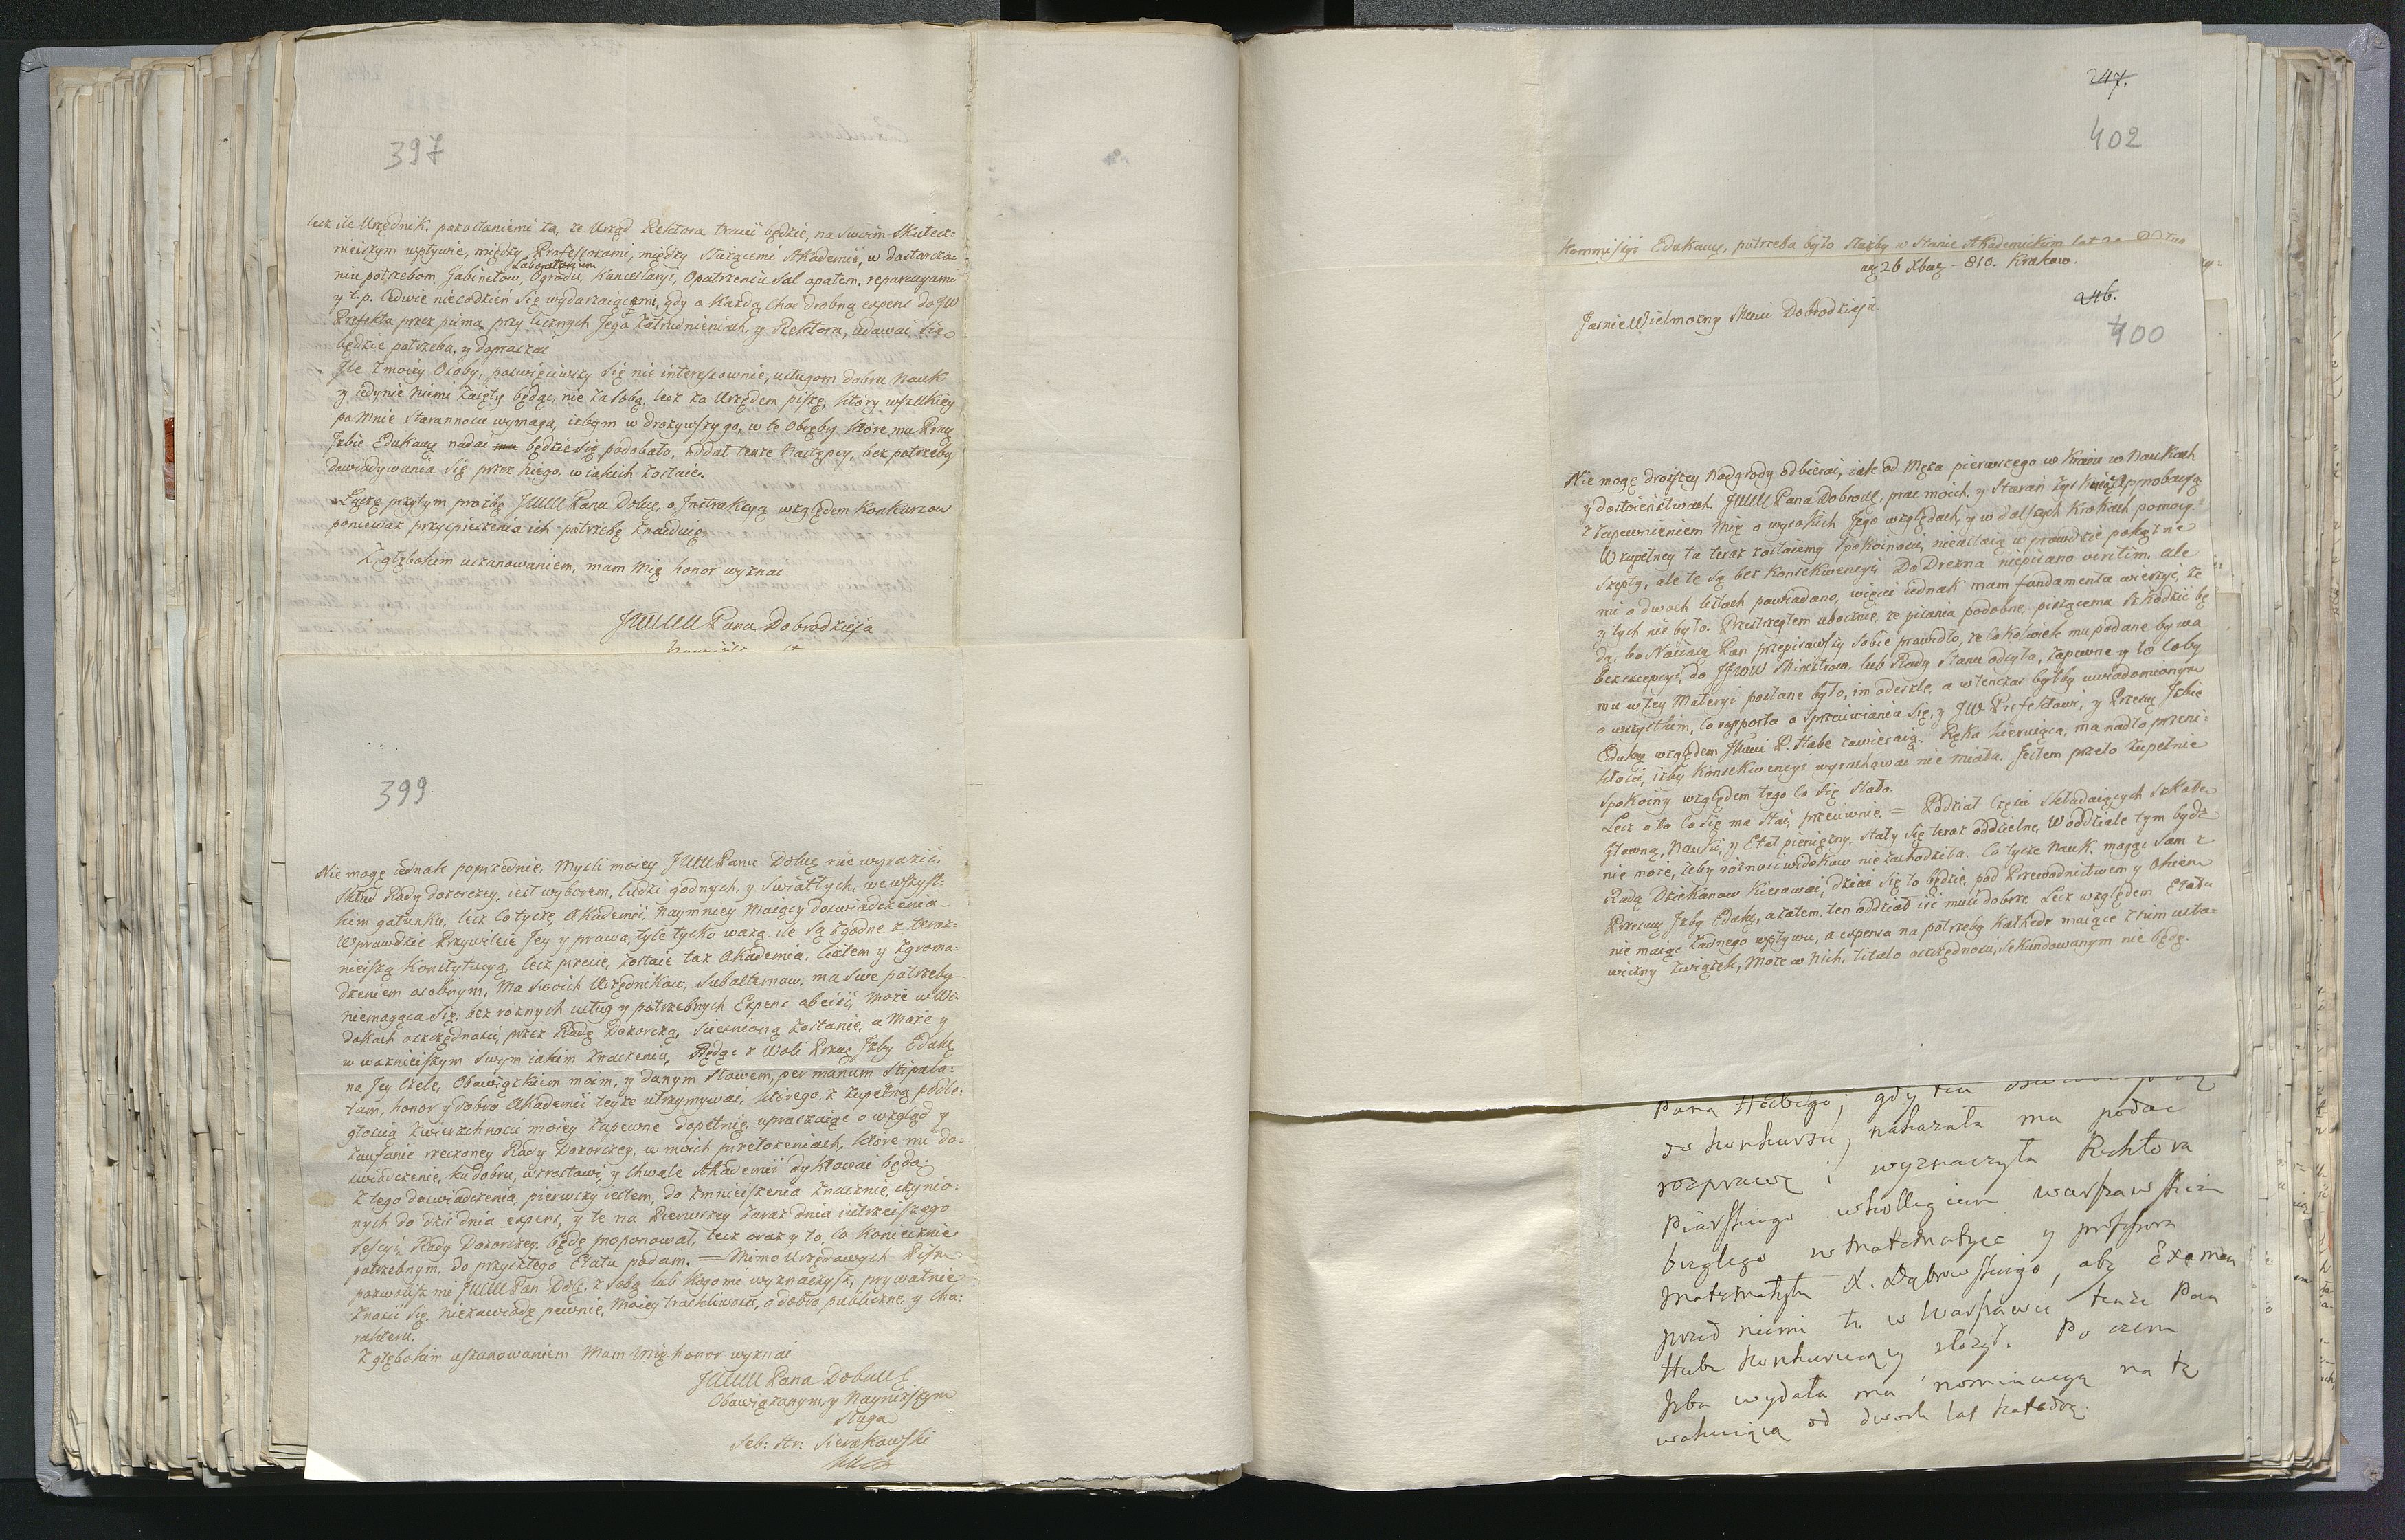 397
lecz ile Urzędnik. pozostaniemi ta, że Urząd Rektora tracić będzie, na swoim skutecz:
nieiszym wpływie, między Professorami, między służącemi Akademii, w dostarcza:
niu potrzebom Gabinetow, Laboratorium Ogrodu, Kancellaryi, Opatrzeniu Sal opałem, reparacyami
y t. p. ledwie niecodzień się wydarzaiącemi, gdy o każdą choć drobną expens do JW
Prefekta przez pisma przy licznych Jego zatrudnieniach, y Rektora, udawać się
będzie potrzeba, y dopraszać
Ile z moiey Osoby, poswięciwszy się nie interessownie, usługom dobru Nauk
y iedynie niemi zaięty będąc, nie za sobą, lecz za Urzędem piszę, który wszelkiey
po mnie staranności wymaga, iżbym wdrożywszy go, w te Obręby które mu Przes
Izbie Edukacy nadać będzie się podobało, oddał tenże Następcy, bez potrzeby
dowiadywania się przez niego, w iakich zostaie.
Łączę przytym prozbę JWW Pana Dobrę, o Instrukcyą względem Konkursow
ponieważ przyspieszenia ich potrzebę znayduię.
Z głębokim uszanowaniem, mam mię honor wyznać
JWWW Pana Dobrodzieja
399
Nie mogę iednak poprzednie, Mysli moiey JWW Panu Dobrę nie wyrazić,
Skład Rady dozorczey, iest wyborem, ludzi godnych, y Swiatłych, we wszyst:
kim gatunku, lecz co tyczę Akademii, Naymniey maiący doswiadczenia
Wprawdzie Przywileie Jey y prawa, tyle tylko ważą ile są zgodne z teraz:
nieiszą Konstytucyą, lecz przecie, zostaie taż Akademia, Ciałem y Zgroma:
dzeniem osobnym, Ma swoich Urzędnikow, Subalternow, ma swe potrzeby
niemogąca się, bez roznych usług y potrzebnych Expens obeiść, może w Wi:
dokach oszczędności, przez Radę Dozorczą, sciesnioną zostanie, a może y
w ważnieiszym swym iakim znaczeniu, Będąc z Woli Przes Izby Edukę
na Jey Czele, Obowiązkiem moim, y danym Słowem, per manum Stipula:
tam, honor y dobro Akademii teyże utrzymywać, którego, z zupełną podle:
głością zwierzchności moiey zapewne dopełnię, upraszaiąc o wzgląd y
zaufanie rzeczoney Rady Dozorczey, w moich przełożeniach, które mi do:
swiadczenie, ku dobru, wzrostowi, y chwale Akademii dyktować będą.
Z tego doswiadczenia, pierwszy iestem, do zmnieiszenia znacznie, czynio:
nych do dziś dnia expens, y te na Pierwszey zaraz dnia iutrzeiszego
sessyi, Rady Dozorczey. będę proponował, lecz oraz y to, co koniecznie
potrzebnym, do przyszłego Etatu podam. = Mimo Urzędowych Pism
pozwolisz mi JWW Pan Dobr. z Sobą lub kogo mi wyznaczysz, prywatnie
znosić się, niezawiodę pewnie, Moiey troskliwości, o dobro publiczne, y cha:
rakteru.
Z głębokim uszanowaniem Mam mię honor wyznać
JWWW Pana Dobrę
Obowiązanym y Nayniższym
Sługą
Seb: Hr: Sierakowski
247.
402
Kommissyi Edukacyę, potrzeba było służby w Stanie Akademickim lat
26 Xbra – 810. Krakow.
246.
400
Jasnie Wielmożny Mości Dobrodzieja.
Nie mogę droższey Nadgrody odbierać, iak od Męża pierwszego w Kraiu w Naukach
y dostoieństwach JWW Pana Dobrodę, prac moich, y Starań
z zapewnieniem mię o wysokich Jego względach, y w dalszych krokach pomocy.
W zupełney tu teraz zostaiemy spokoiności, nieustaią wprawdzie pokątne
szepty, ale te są bez konsekwencyi Do Drezna niepisano viritim, ale
mi o dwoch listach powiadano, więcey iednak mam fundamenta wierzyć, że
y tych nie było. Przestrzegłem ubocznie, że pisania podobne, piszącemu szkodzić bę
dą, bo Nayias Pan przepisawszy sobie prawidło, że cokolwiek mu podane bywa
bez excepcyi, do JJWW Ministrow, lub Rady Stanu odsyła, zapewne y to coby
mu w tey Materyi posłane było, im odeszle, a wtenczas byłby uwiadomionym
o wszystkim, co rapporta o sprzeciwiania się, y JW Prefektowi, y Przesę Izbie
Edukę względem JMci P. Habe zawieraią. Ręka kieruiąca, ma nadto przeni:
kłości, iżby konsekwencyi wyrachować nie miała. Jestem przeto zupełnie
spokoiny względem tego co się stało.
Lecz o to co się ma stać, przeciwnie, = Podział części składaiących Szkołę
Głowną, Nauki, y Etat pieniężny, stały się teraz oddzielne, W oddziale tym bydź
nie może, żeby różność widokow nie zachodziła. Co tycze Nauk. mogąc Sam z
Radą Dziekanow kierować, dziać się to będzie, pod Przewodnictwem y Okiem
Przesney Izby Edukę, a zatem, ten oddział iść musi dobrze, Lecz względem Etatu
nie maiąc żadnego wpływu, a expensa na potrzeby Kathedr maiące z nim usta:
wiczny związek, Może w nich, titulo oszczędności, sekundowanym nie będę.
Pana Hubego, gdy
do konkursu, nakazała mu podać
rozprawę i wyznaczyła Rektora
Piarskiego w kollegium warszawskim
biegłego w matematyce y professora
matematyki X. Dąbrowskiego, aby Examen
przed niemi tu w Warszawie tenże Pan
Hube konkuruiący złożył. Po czem
Izba wydała mu nominacyą na tę
wakuiącą od dwoch lat katedrę.